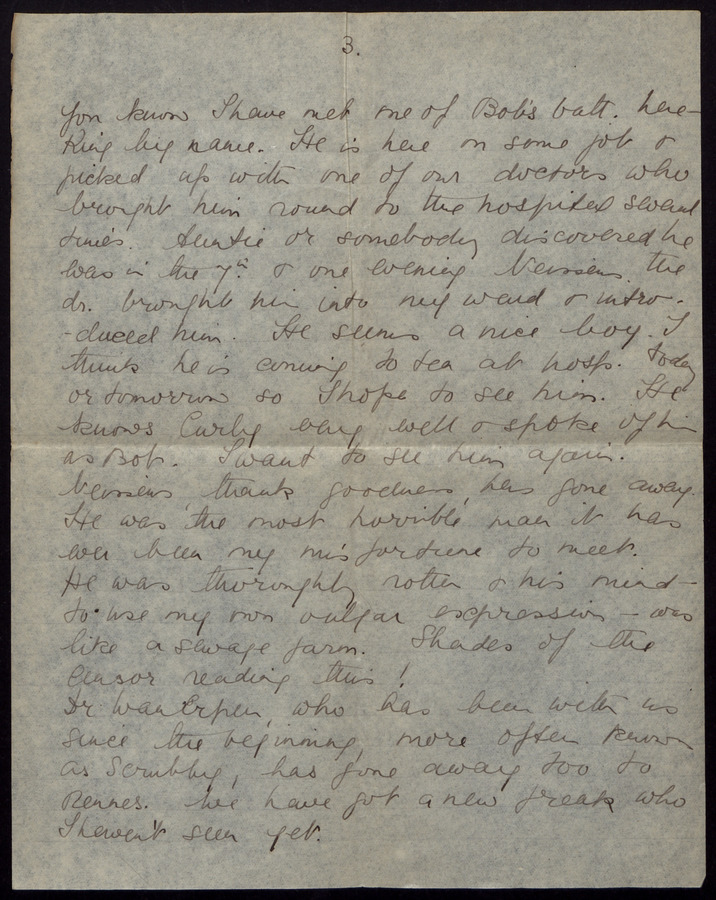 3.
You know I have met one of Bob's batt. here-
King his name. He is here on some job &
picked up with one of our doctors who
brought him round to the hospital several
times. Auntie or somebody discovered he
was in the 7th & one evening the
dr. brought him into my ward & intro-
-duced him. He seems a nice boy. I
think he is coming to tea at hosp. today
or tomorrow so I hope to see him. He
knows Curly very well & spoke of him
as Bob. I want to see him again.
thank goodness, has gone away.
He was the most horrible man it has
ever been my misfortune to meet.
He was thoroughly rotten & his mind -
to use my own vulgar expression - was
like a sewage farm. Shades of the
Censor reading this!
Dr. who has been with us
since the beginning, more often known
as Scrubby, has gone away too to
Rennes. We have got a new freak who
I haven't seen yet.